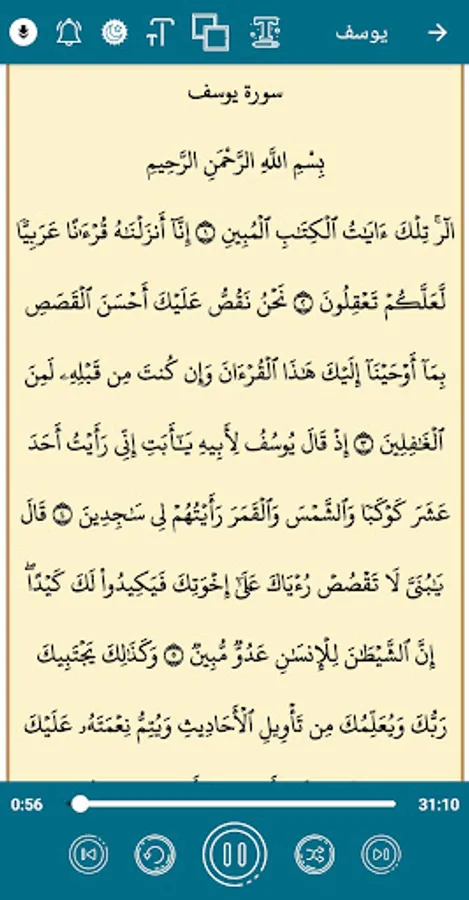 يوسف
سورة يوسف
بِسْمِ اللَّهِ الرَّحْمَنِ الرَّحِيمِ
الٓرۚ تِلْكَ ءَايَٰتُ ٱلْكِتَٰبِ ٱلْمُبِينِ ۝١ إِنَّآ أَنزَلْنَٰهُ قُرْءَٰنًا عَرَبِيًّا
لَّعَلَّكُمْ تَعْقِلُونَ ۝٢ نَحْنُ نَقُصُّ عَلَيْكَ أَحْسَنَ ٱلْقَصَصِ
بِمَآ أَوْحَيْنَآ إِلَيْكَ هَٰذَا ٱلْقُرْءَانَ وَإِن كُنتَ مِن قَبْلِهِۦ لَمِنَ
ٱلْغَٰفِلِينَ ۝٣ إِذْ قَالَ يُوسُفُ لِأَبِيهِ يَٰٓأَبَتِ إِنِّى رَأَيْتُ أَحَدَ
عَشَرَ كَوْكَبًا وَٱلشَّمْسَ وَٱلْقَمَرَ رَأَيْتُهُمْ لِى سَٰجِدِينَ ۝٤ قَالَ
يَٰبُنَىَّ لَا تَقْصُصْ رُءْيَاكَ عَلَىٰٓ إِخْوَتِكَ فَيَكِيدُوا۟ لَكَ كَيْدًاۖ
إِنَّ ٱلشَّيْطَٰنَ لِلْإِنسَٰنِ عَدُوٌّ مُّبِينٌ ۝٥ وَكَذَٰلِكَ يَجْتَبِيكَ
رَبُّكَ وَيُعَلِّمُكَ مِن تَأْوِيلِ ٱلْأَحَادِيثِ وَيُتِمُّ نِعْمَتَهُۥ عَلَيْكَ
0:56
31:10